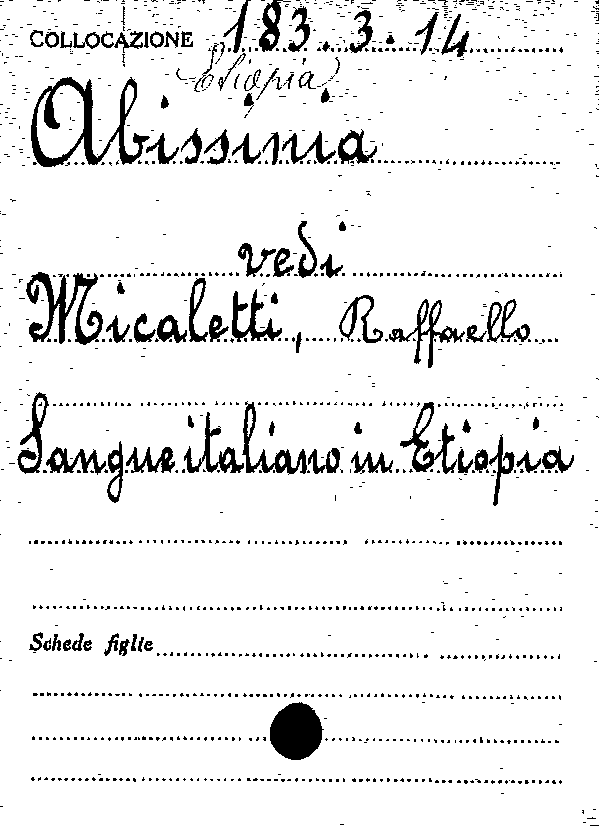 COLLOCAZIONE 183.3.14
Etiopia
Abissinia
vedi
Micaletti, Raffaello
Sangue italiano in Etiopia
Schede figlie